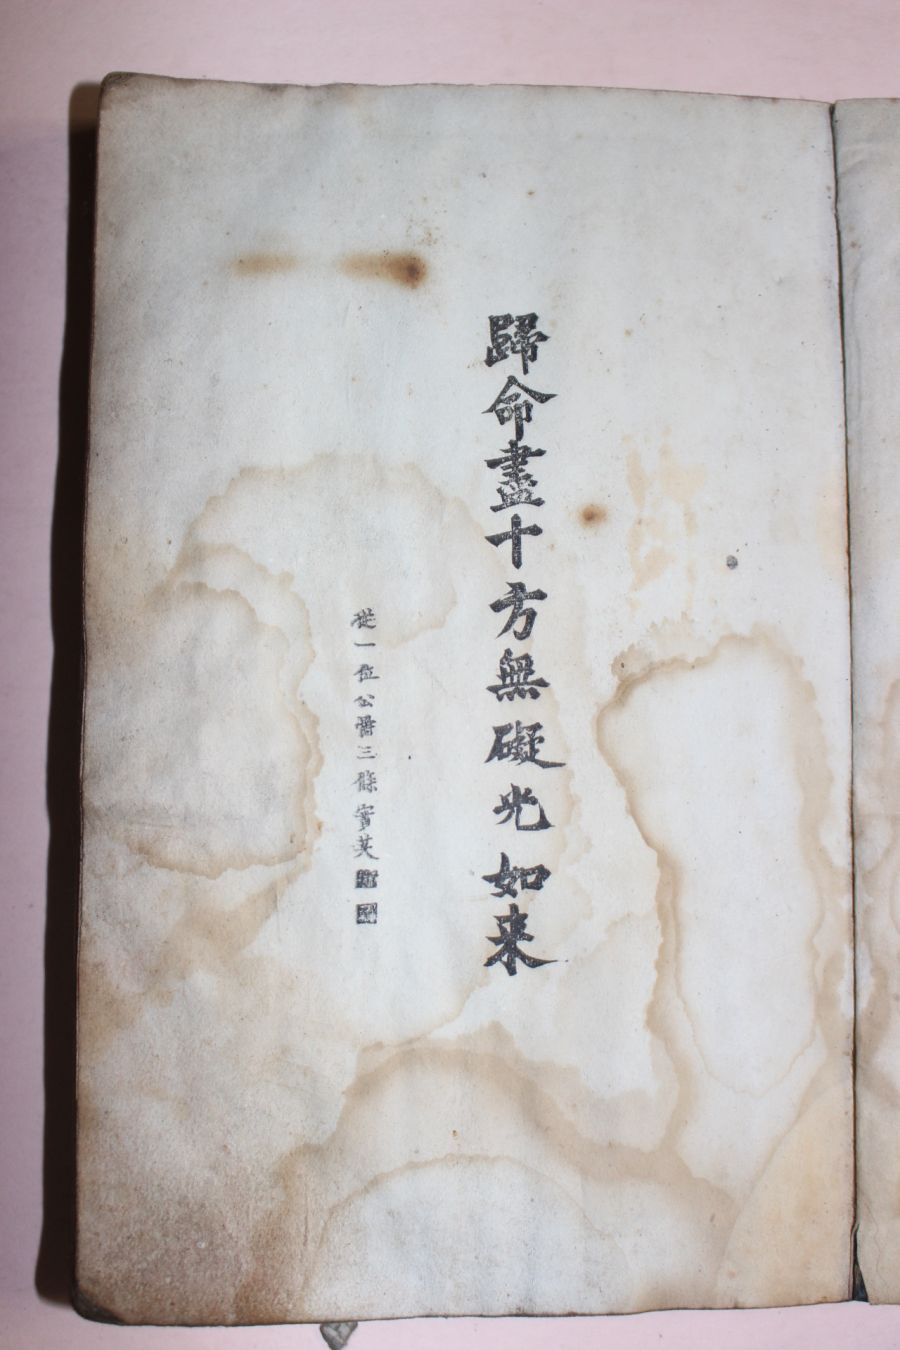 歸命盡十方無礙光如来
從一位公爵三條實美